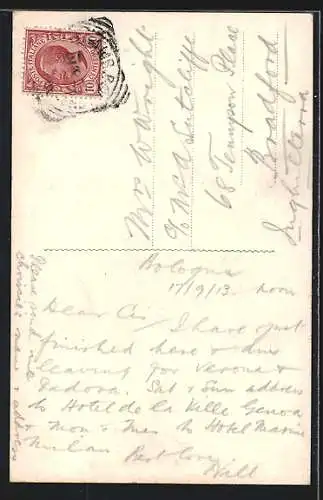 Mrs W Wright
c/o Mrs A Sutcliffe
68 Tennyson Place
Bradford
Inghilterra
Bologna
17/9/13. noon
Dear Cis I have just
finished here & am
leaving for Verona &
Padova. Sat & Sun address
to Hotel de la Ville Genoa
& Mon & Tues to Hotel
Milan Best love
Will
Please send me
name & address